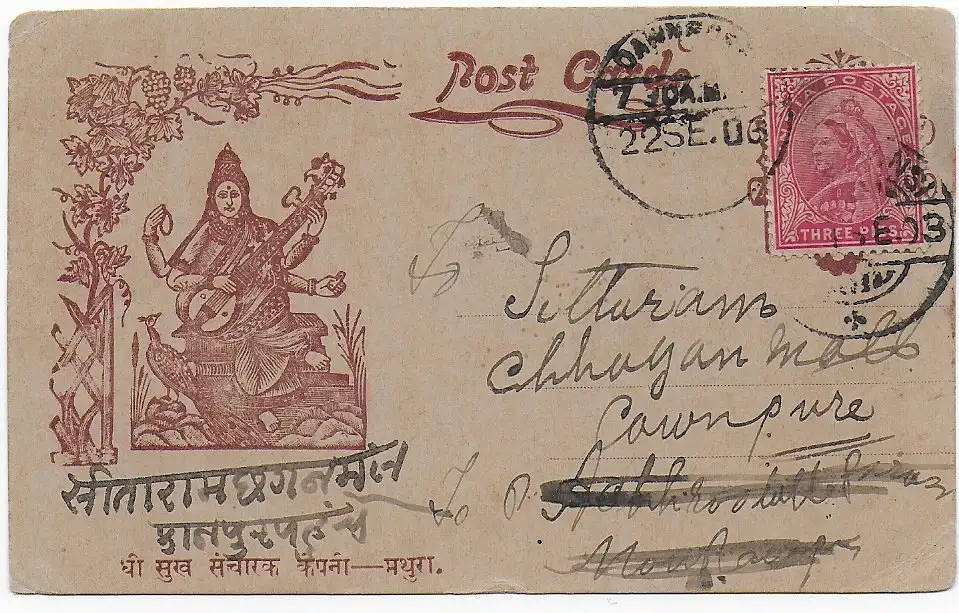 Post Card
CAWNPORE
7 30A.M.
22 SE. 06
POSTAGE
THREE PIES
SE 03
To
Sittaram
Chhogan Mall
Cawnpure
To P.
सीतारामछगनमल
कानपुरपहुंचे
श्री सुख संचारक कंपनी—मथुरा.